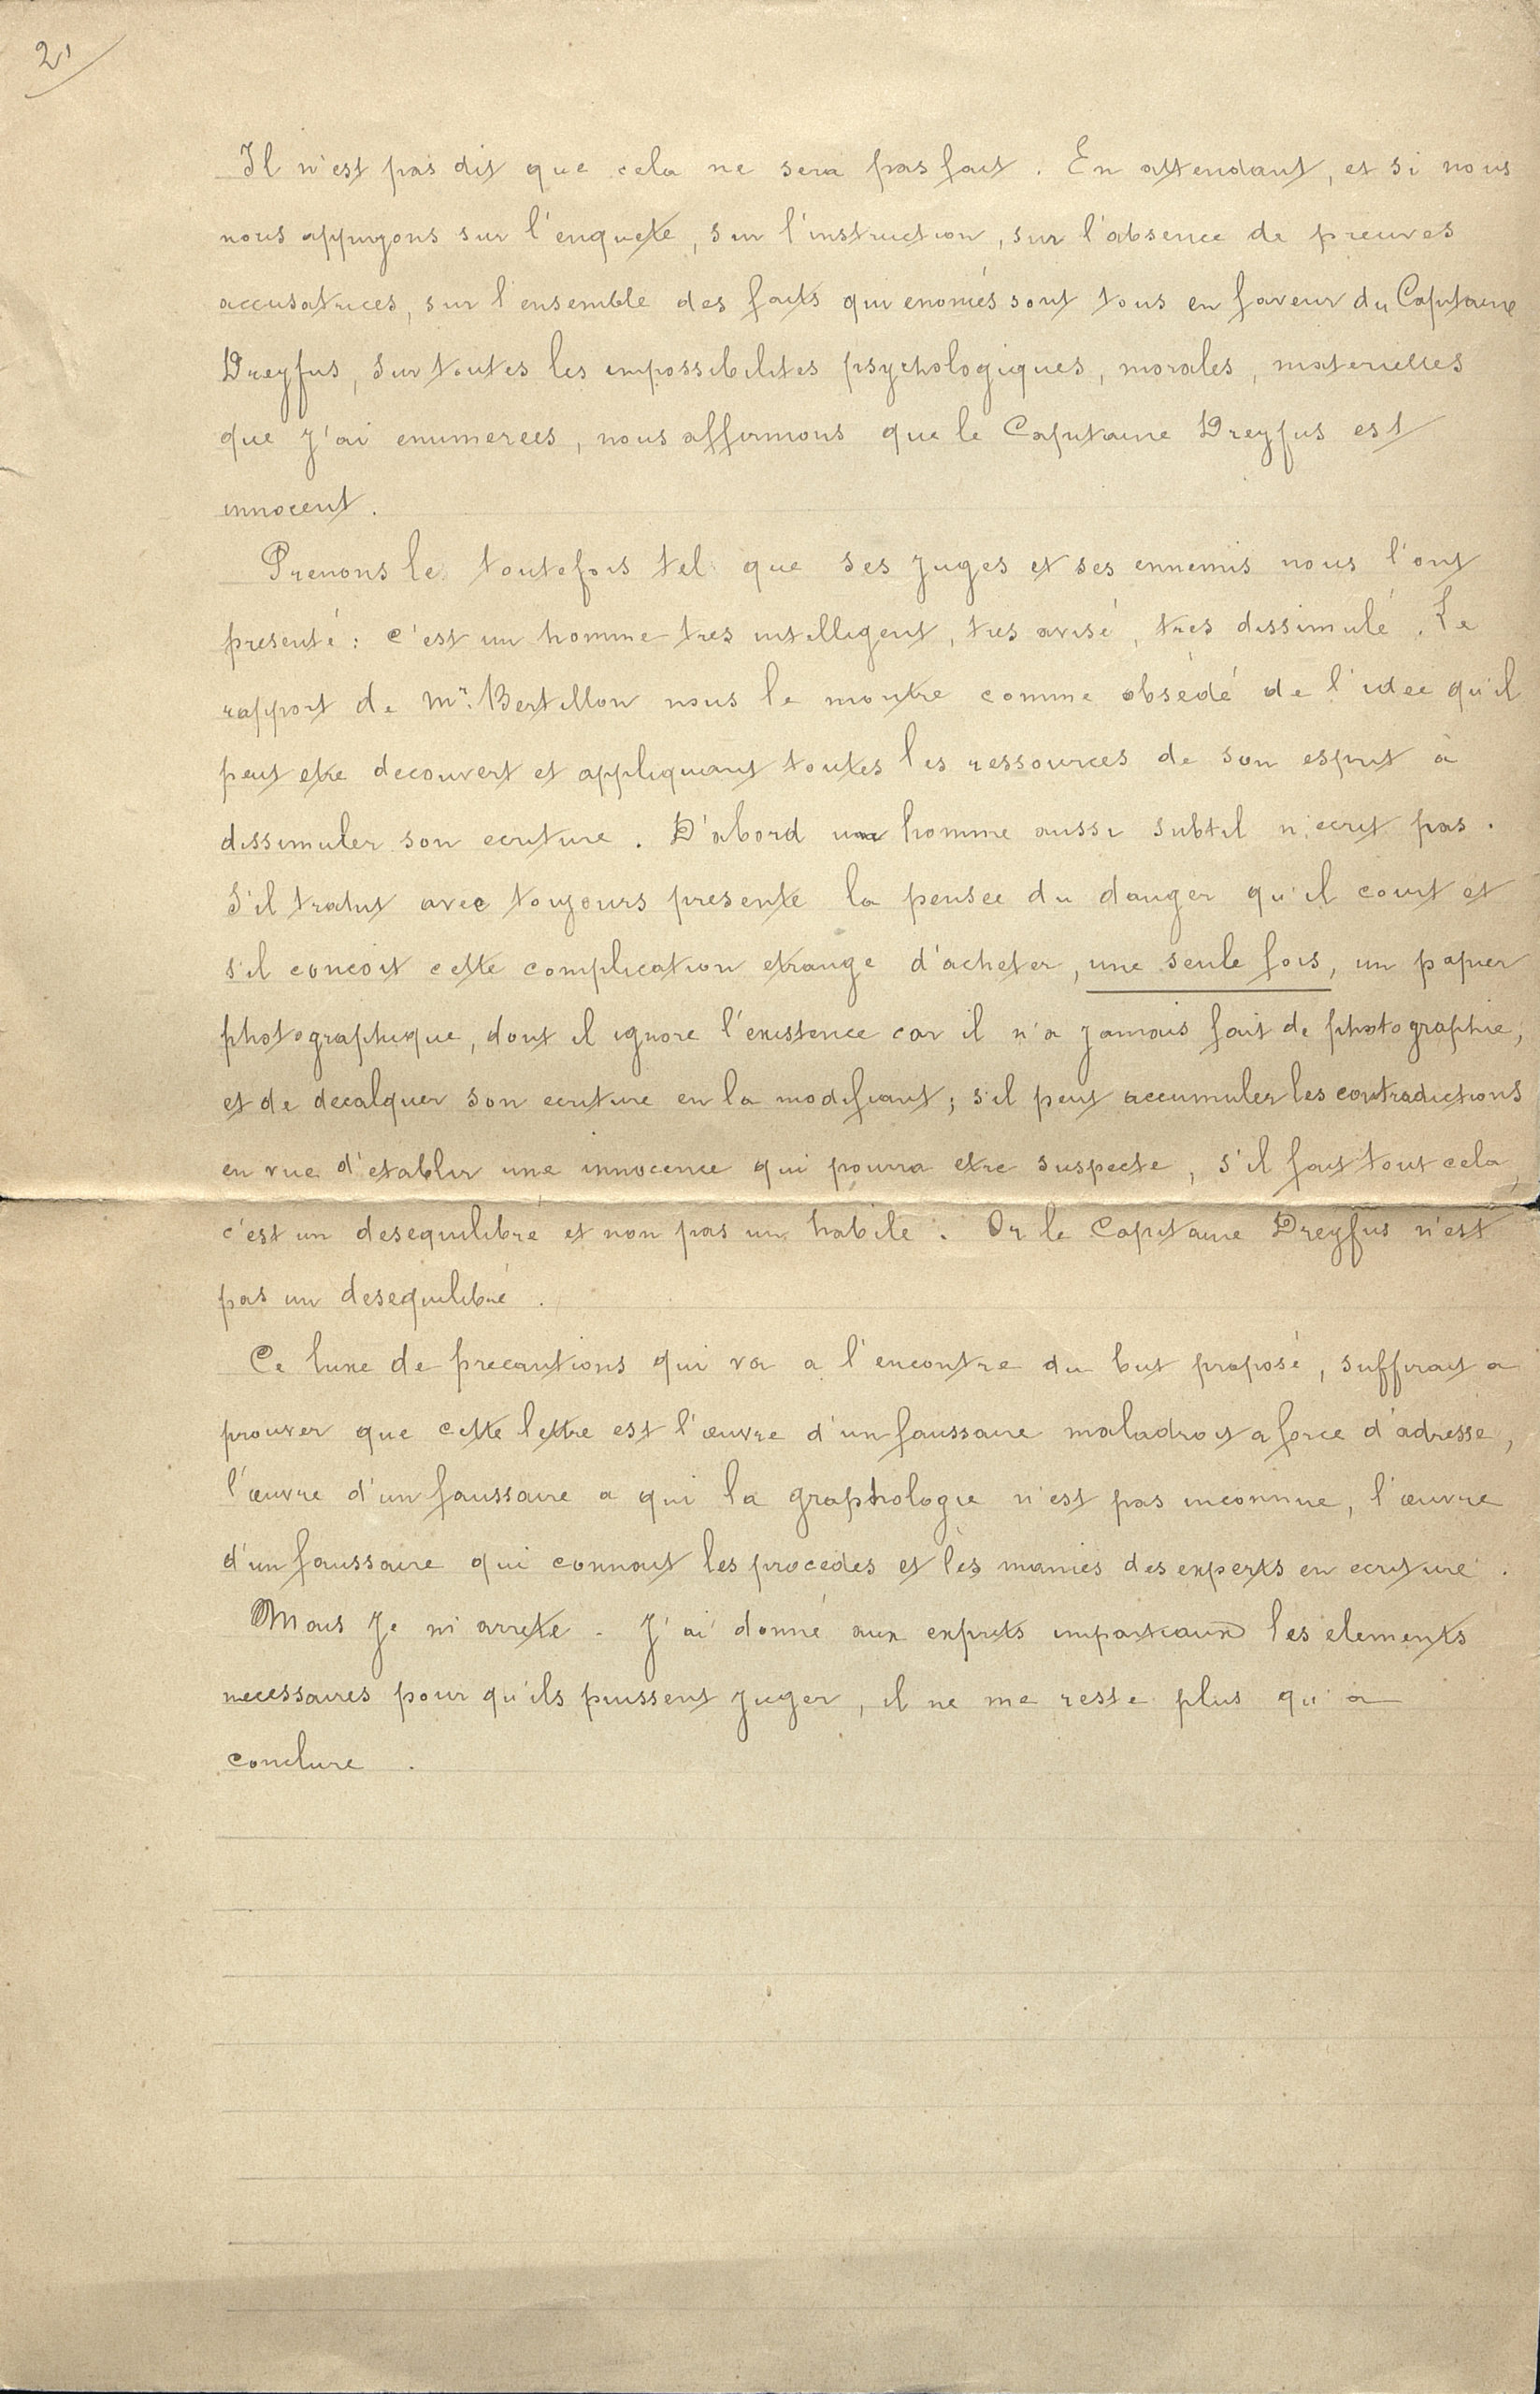 21
Il n'est pas dit que cela ne sera pas fait. En attendant, et si nous
nous appuyons sur l'enquete, sur l'instruction, sur l'absence de preuves
accusatrices, sur l'ensemble des faits qui enoncés sont tous en faveur du Capitaine
Dreyfus, sur toutes les impossibilites psychologiques, morales, materielles
que j'ai enumerees, nous affirmons que le Capitaine Dreyfus est
innocent.
Prenons le toutefois tel que ses juges et ses ennemis nous l'ont
presenté : c'est un homme tres intelligent, tres avisé, très dissimulé. Le
rapport de Mr. Bertillon nous le montre comme obsédé de l'idee qu'il
peut etre decouvert et appliquant toutes les ressources de son esprit à
dissimuler son ecriture. D'abord un homme aussi subtil n'ecrit pas.
S'il trahit avec toujours presente la pensee du danger qu'il court et
s'il concoit cette complication etrange d'acheter, une seule fois, un papier
photographique, dont il ignore l'existence car il n'a jamais fait de photographie,
et de decalquer son ecriture en la modifiant ; s'il peut accumuler les contradictions
en vue d'etablir une innocence qui pourra etre suspecte, s'il fait tout cela,
c'est un desequilibré et non pas un habile. Or le Capitaine Dreyfus n'est
pas un desequilibré.
Ce luxe de precautions qui va a l'encontre du but proposé, suffirait a
prouver que cette lettre est l'œuvre d'un faussaire maladroit a force d'adresse,
l'œuvre d'un faussaire a qui la graphologie n'est pas inconnue, l'œuvre
d'un faussaire qui connait les procedes et les manies des experts en ecriture.
Mais je m'arrete. J'ai donné aux experts impartiaux les elements
necessaires pour qu'ils puissent juger, il ne me reste plus qu'a
conclure.